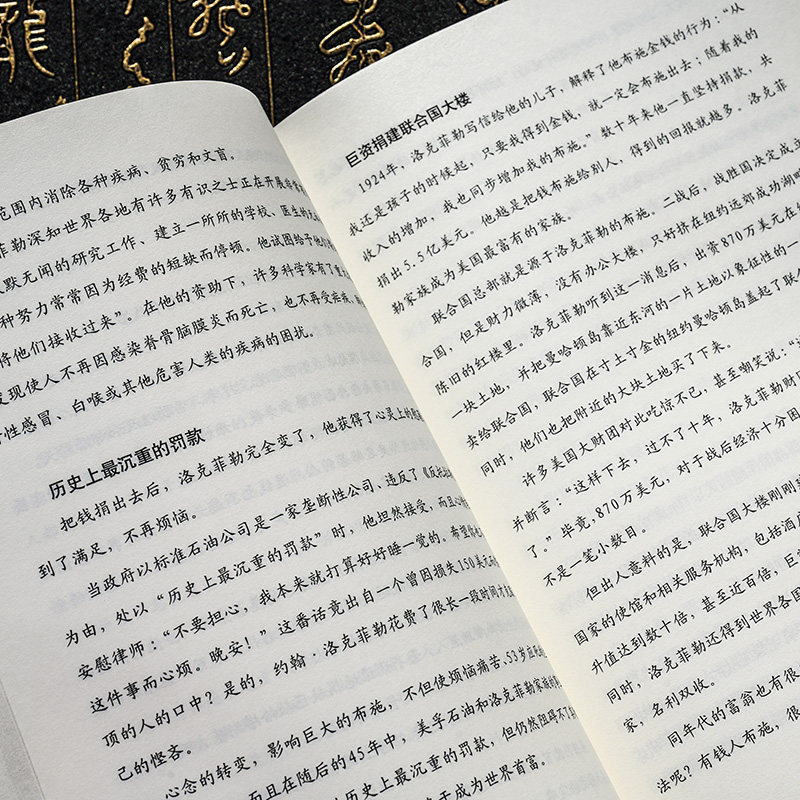 范围内消除各种疾病、贫穷和文盲。
菲勒深知世界各地有许多有识之士正在开展
默无闻的研究工作、建立一所所的学校、医生的
种努力常常因为经费的短缺而停顿。他试图给予他
将他们接收过来”。在他的资助下，许多科学家有了
发现使人不再因感染脊骨脑膜炎而死亡，也不再受疟疾、
性感冒、白喉或其他危害人类的疾病的困扰。
历史上最沉重的罚款
把钱捐出去后，洛克菲勒完全变了，他获得了心灵上的
到了满足，不再烦恼。
当政府以标准石油公司是一家垄断性公司、违反了《反托
为由，处以“历史上最沉重的罚款”时，他坦然接受，而且心
安慰律师：“不要担心，我本来就打算好好睡一觉的。希望你
这件事而心烦。晚安！”这番话竟出自一个曾因损失150美元
顶的人的口中？是的，约翰·洛克菲勒花费了很长一段时间方
己的悭吝。
心念的转变，影响巨大的布施，不但使烦恼痛苦、53岁
而且在随后的45年中，美孚石油和洛克菲勒家族
历史上最沉重的罚款，但仍然阻碍不了
于成为世界首富。
巨资捐建联合国大楼
1924年，洛克菲勒写信给他的儿子，解释了他布施金钱的行为：“从
我还是孩子的时候起，只要我得到金钱，就一定会布施出去；随着我的
收入的增加，我也同步增加我的布施。”数十年来他一直坚持捐款，共
捐出5.5亿美元。他越是把钱布施给别人，得到的回报就越多。洛克菲
勒家族成为美国最富有的家族。
联合国总部就是源于洛克菲勒的布施。二战后，战胜国决定成立
合国，但是财力微薄，没有办公大楼，只好挤在纽约远郊成功湖畔
陈旧的红楼里。洛克菲勒听到这一消息后，出资870万美元在纽
一块土地，并把曼哈顿岛靠近东河的一片土地以象征性的一
卖给联合国，联合国在寸土寸金的纽约曼哈顿岛盖起了联
同时，他们也把附近的大块土地买了下来。
许多美国大财团对此吃惊不已，甚至嘲笑说：“
并断言：“这样下去，过不了十年，洛克菲勒财
了。”毕竟，870万美元，对于战后经济十分困
不是一笔小数目。
但出人意料的是，联合国大楼刚刚
国家的使馆和相关服务机构，包括酒
升值达到数十倍，甚至近百倍，巨
同时，洛克菲勒还得到世界各国
家，名利双收。
同年代的富翁也有很
法呢？有钱人布施，很